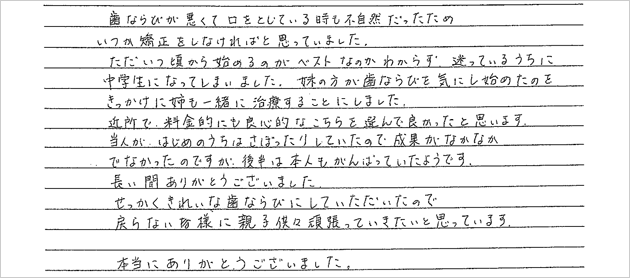 歯ならびが悪くて口をとじている時も不自然だったため
いつか矯正をしなければと思っていました。
ただいつ頃から始めるのがベストなのかわからず、迷っているうちに
中学生になってしまいました。妹の方が歯ならびを気にし始めたのを
きっかけに姉も一緒に治療することにしました。
近所で、料金的にも良心的なこちらを選んで良かったと思います。
当人が、はじめのうちはさぼったりしていたので成果がなかなか
でなかったのですが、後半は本人もがんばっていたようです。
長い間ありがとうございました。
せっかくきれいな歯ならびにしていただいたので
戻らない様に親子供々頑張っていきたいと思っています。
本当にありがとうございました。